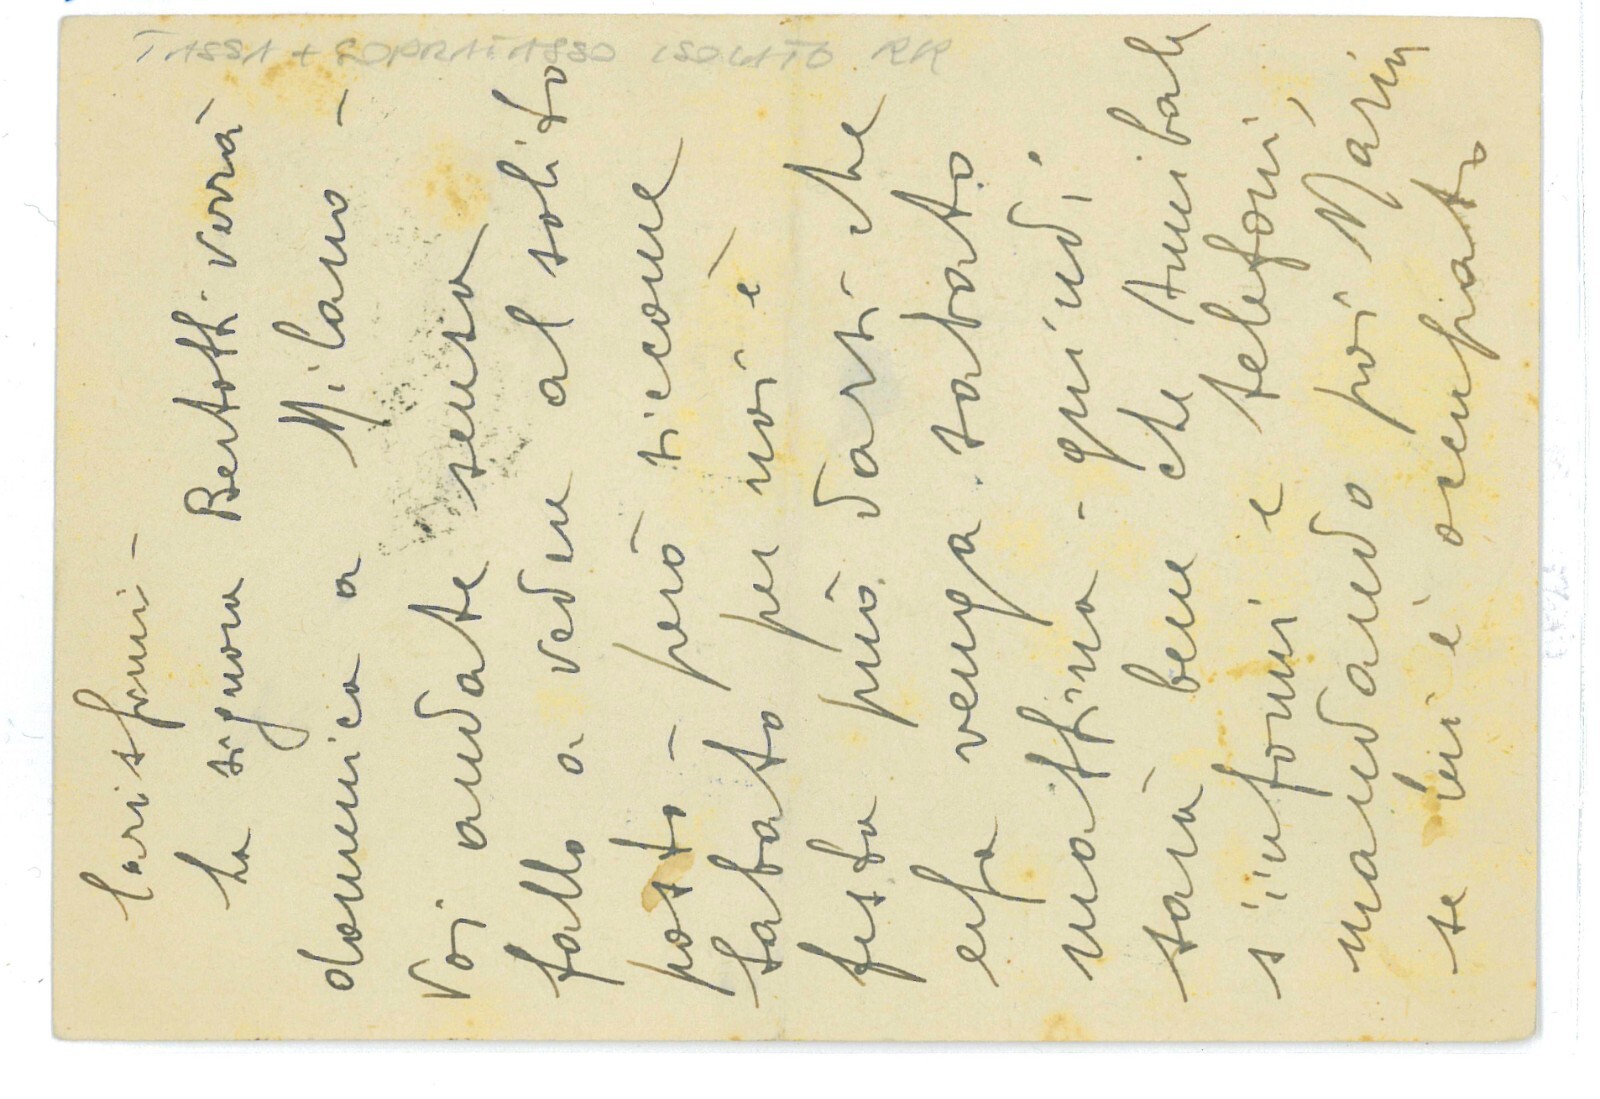 TASSA + SOPRATASSA ISOLATO RR
Carissimi -
La signora Bertotti verrà
domenica a Milano -
Voi andate senza
fallo a vedere al solito
posto - però siccome
sabato per noi è
festa può darsi che
venga sabato
mattina - quindi
sarà bene che Annibale
s'informi e telefoni,
mandando poi Maria
se lui è occupato